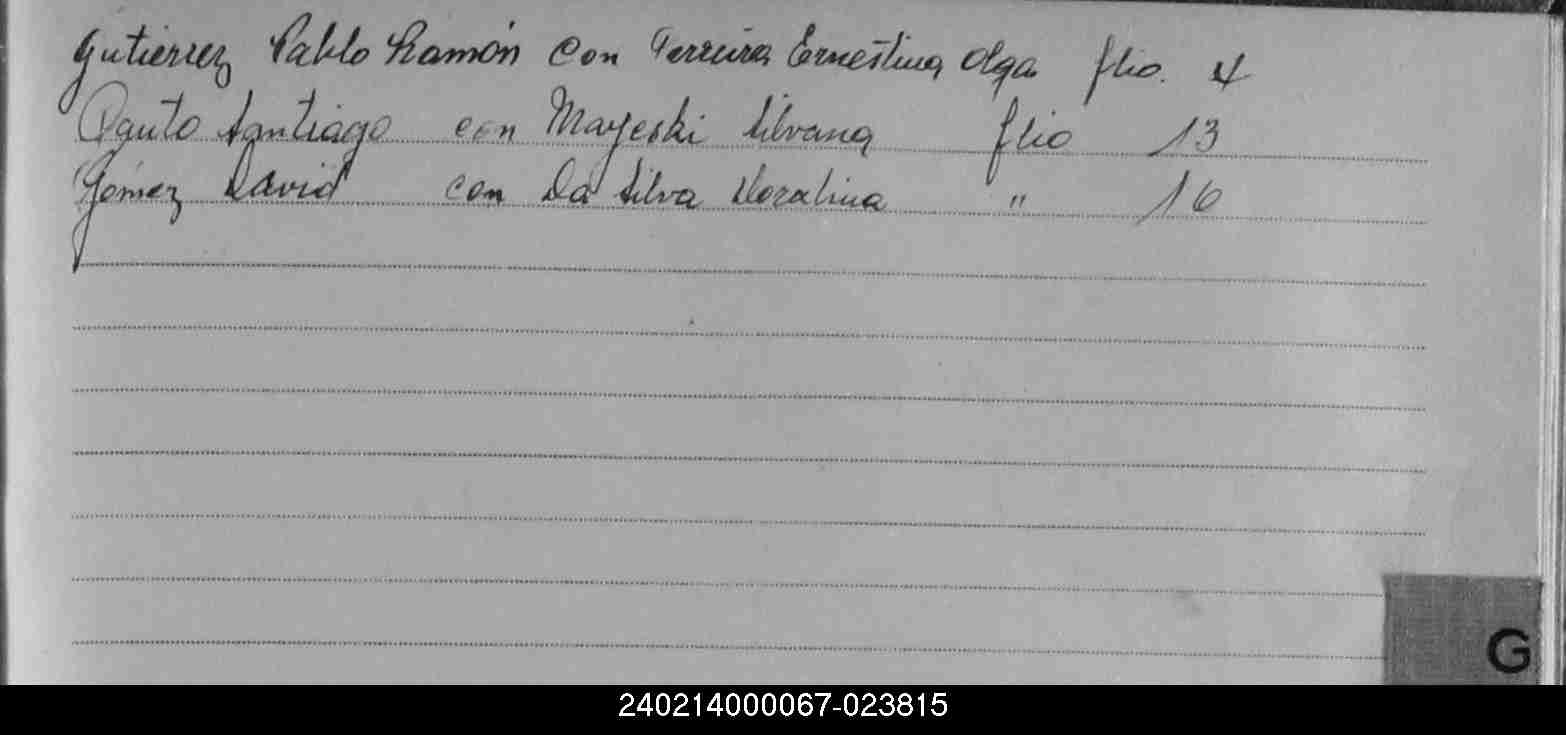 Gutierrez Pablo Ramón con Ferreira Ernestina Olga flio. 4
Santiago con Mayeski Silvana flio 13
Gómez David con Da Silva " 16
G
240214000067-023815